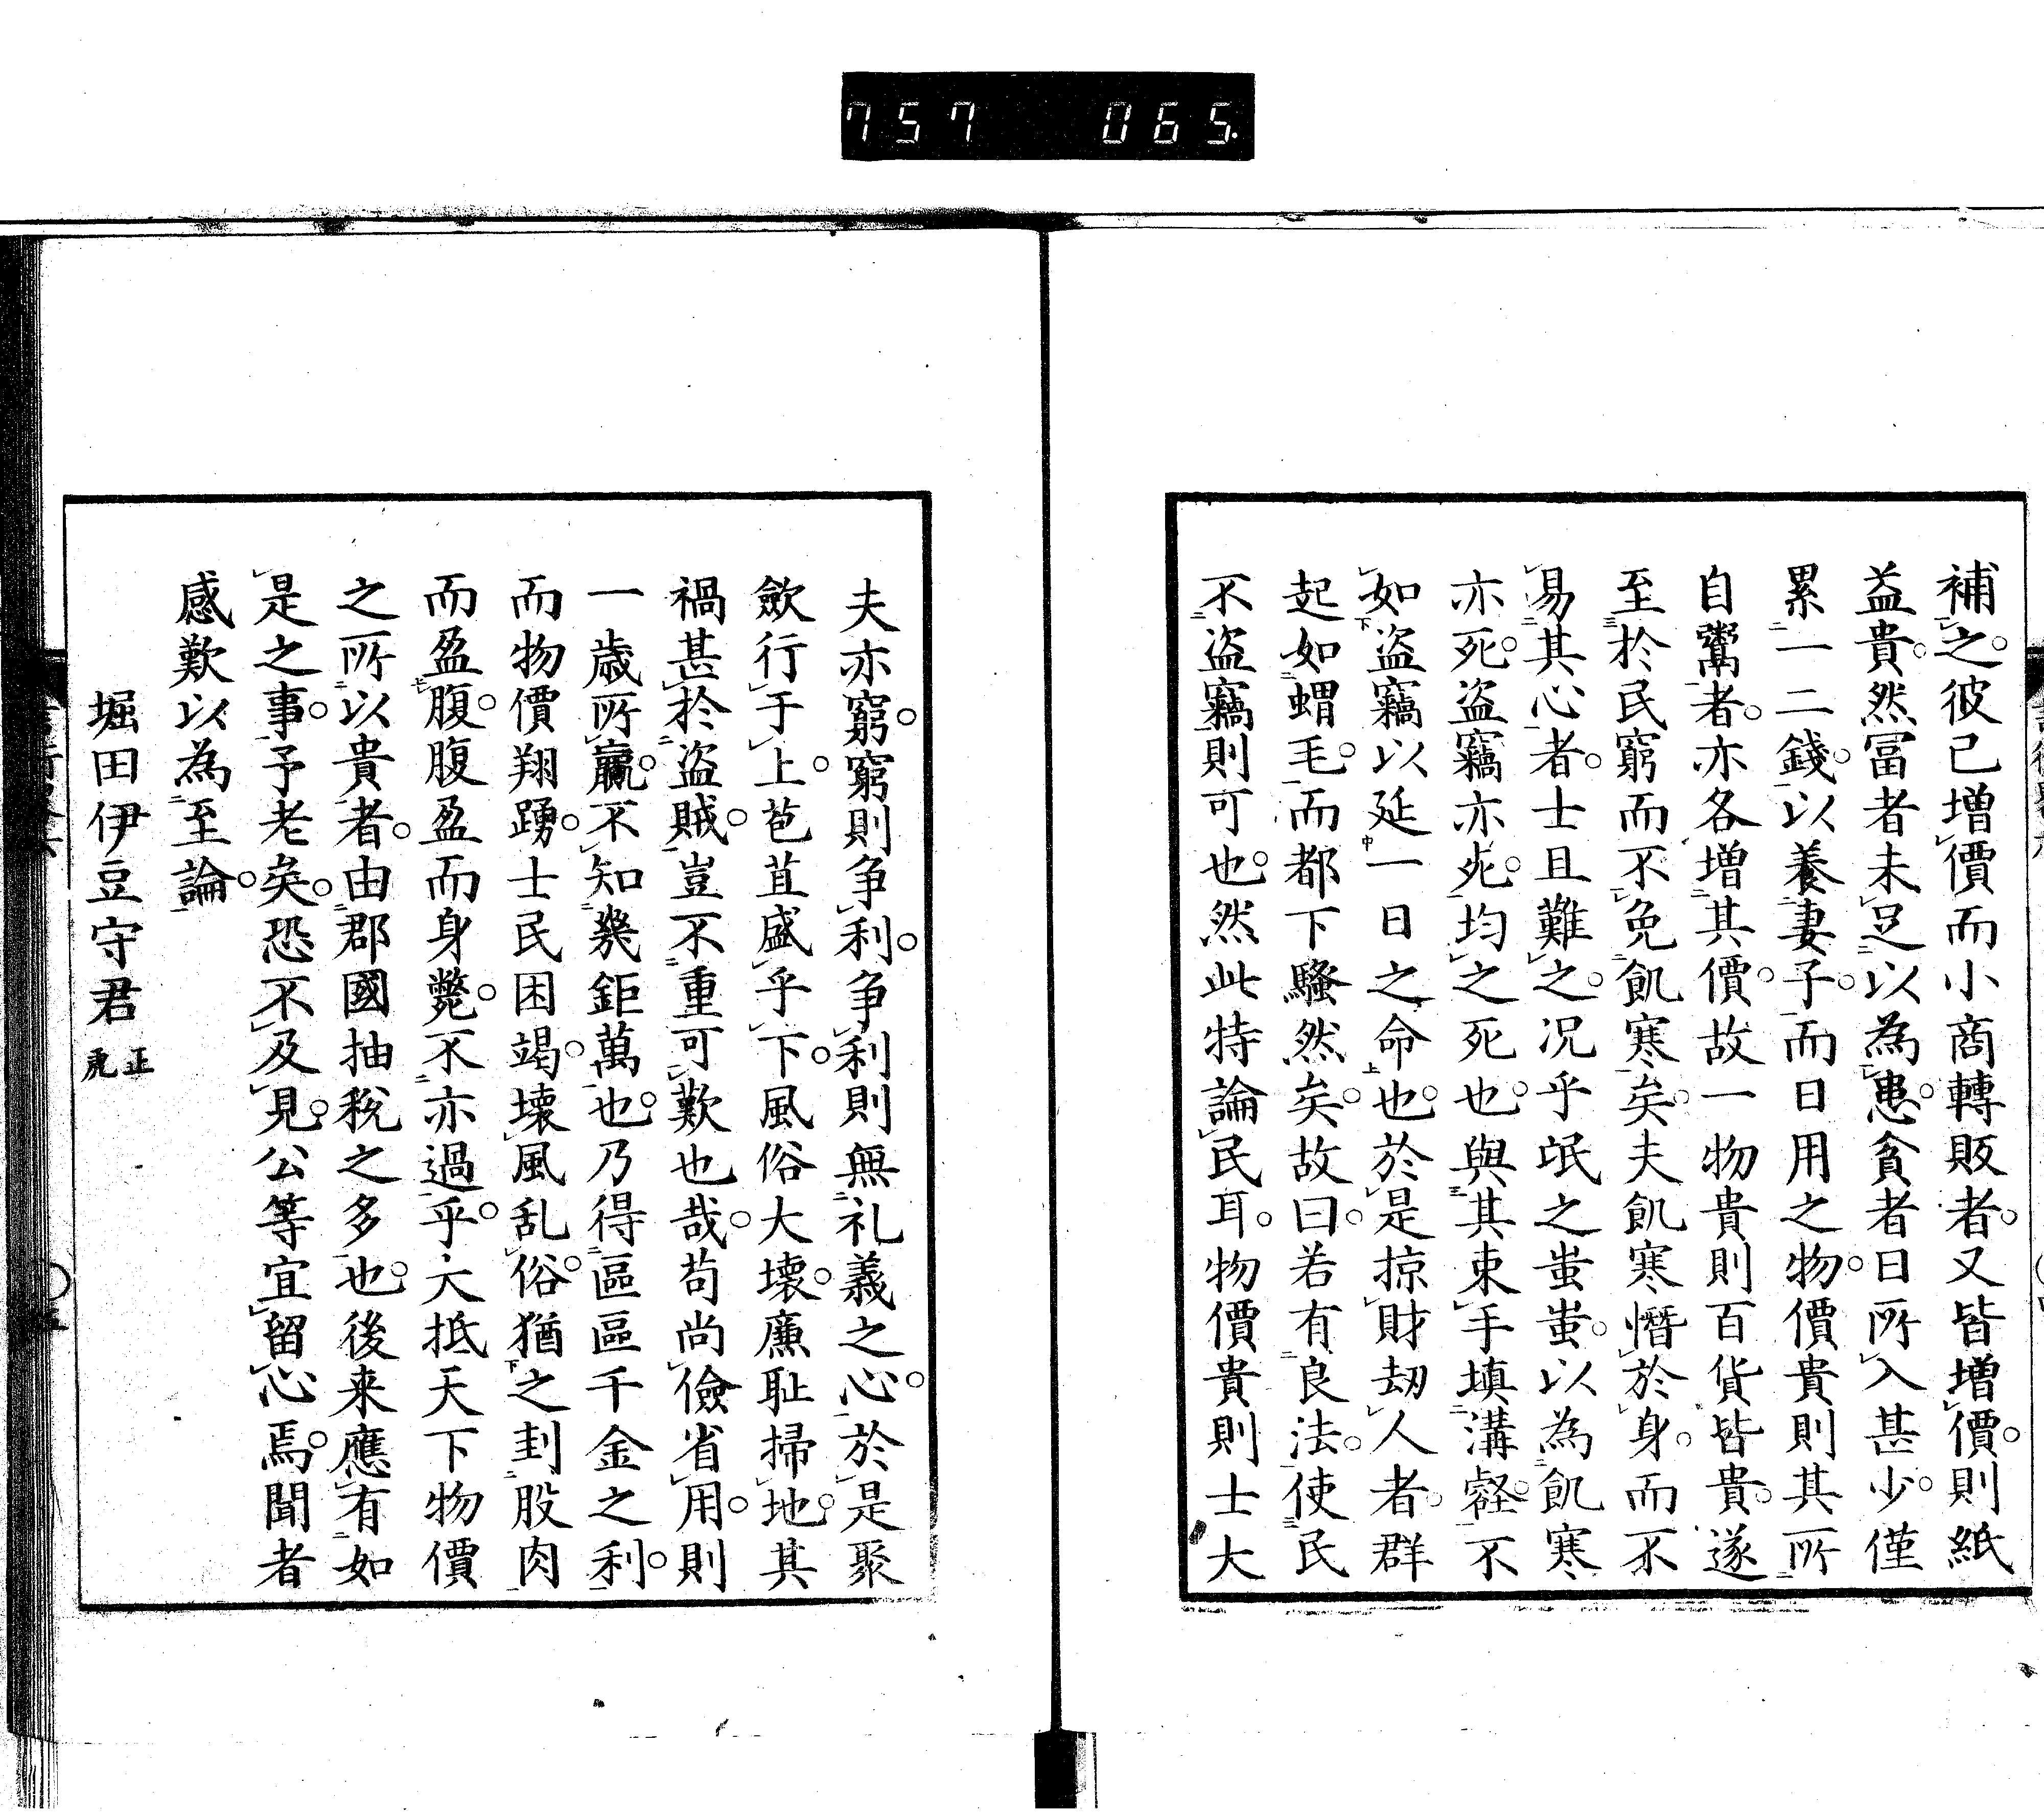 757 065.
補之。彼已增價而小商轉販者。又皆增價。則紙
益貴。然冨者未足以為患。貧者日所入甚少。僅
累一二錢。以養妻子。而日用之物。價貴則其所
自鬻者。亦各增其價。故一物貴則百貨皆貴。遂
至於民窮而不免飢寒矣。夫飢寒憯於身。而不
易其心者。士且難之。况乎氓之蚩蚩。以為飢寒
亦死。盜竊亦死。均之死也。與其束手填溝壑。不
如盜竊以延一日之命也。於是掠財劫人者。群
起如蝟毛。而都下騷然矣。故曰。若有良法。使民
不盜竊則可也。然此特論民耳。物價貴則士大
夫亦窮。窮則争利。争利則無礼義之心。於是聚
歛行于上。苞苴盛乎下。風俗大壊。廉耻掃地。其
禍甚於盜賊。豈不重可歎也哉。苟尚儉省用。則
一歳所贏。不知幾鉅萬也。乃得區區千金之利。
而物價翔踴。士民困竭。壊風乱俗。猶之刲股肉
而盈腹。腹盈而身斃。不亦過乎。大抵天下物價
之所以貴者。由郡國抽稅之多也。後来應有如
是之事。予老矣。恐不及見。公等宜留心焉。聞者
感歎以為至論。
堀田伊豆守君 正